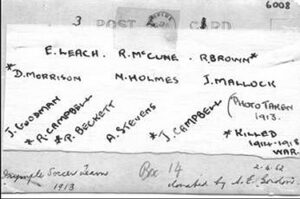 6008
3 2 1
POST CARD
E. LEACH. R. McCUNE. R. BROWN*
*D. MORRISON M. HOLMES J. MALLOCK
J. GOODMAN *R. CAMPBELL *R. BECKETT A. STEVENS *J. CAMPBELL
(PHOTO TAKEN
1913.
*KILLED
1914-1918
WAR.
Soccer Team
1913
Box 14
2.6.62
donated by A. E. Gordon